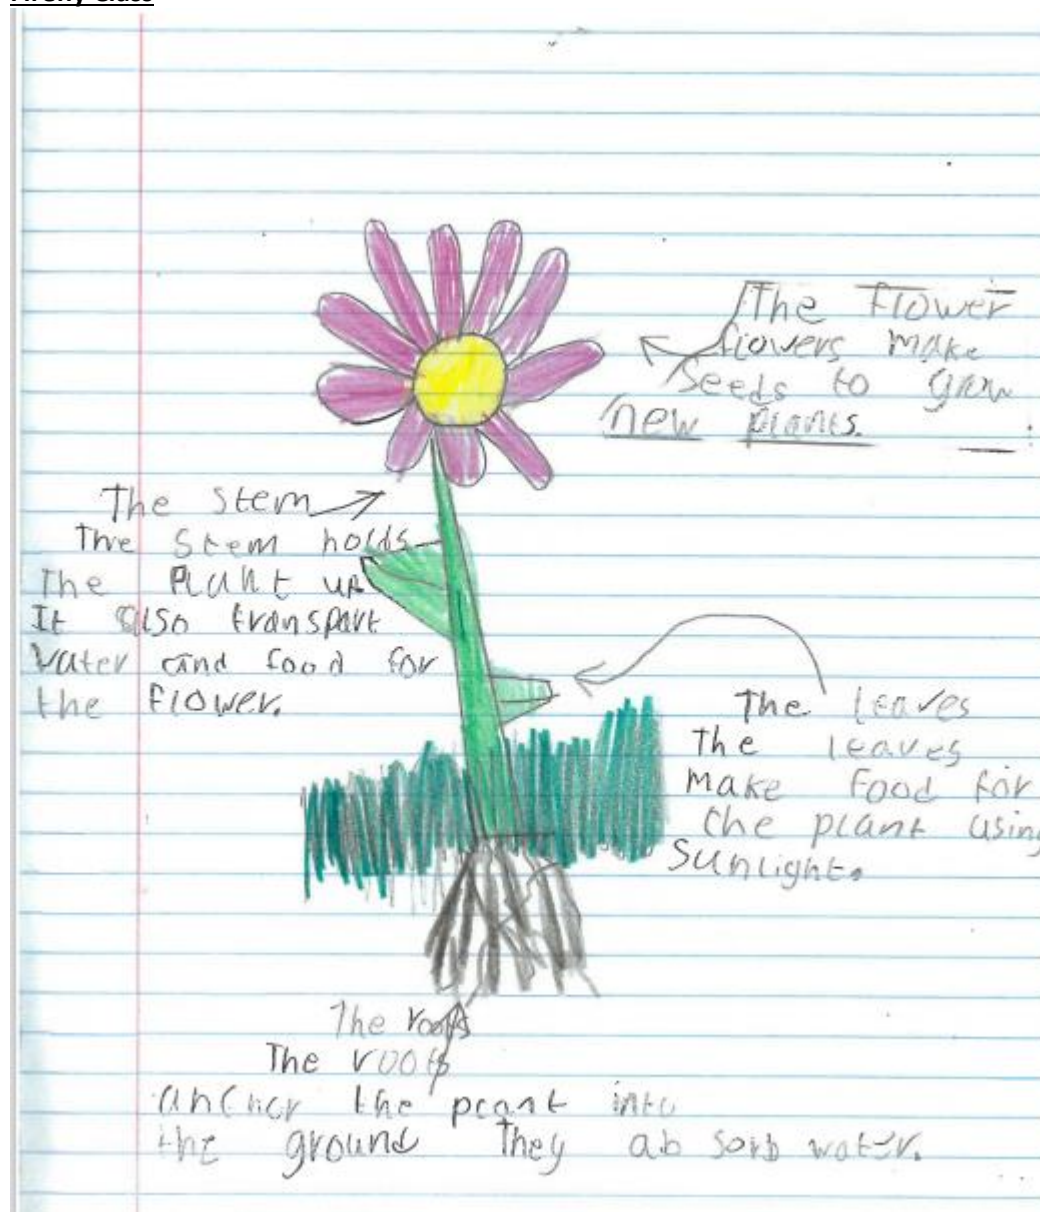 Class
The Flower
flowers make
seeds to grow
new plants.
The Stem
The Stem holds
The Plant up
It also transport
Water and food for
the flower.
The leaves
The leaves
make food for
the plant using
Sunlight.
The roots
The roots
anchor the plant into
the ground They ab sorb water.